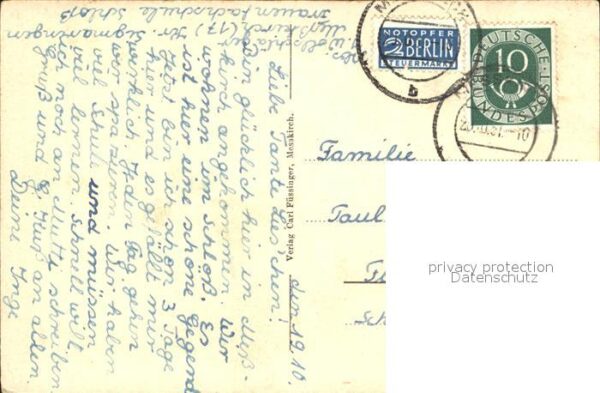 Abs. W. Schäfer
Meßkirch (17) Kr. Sigmaringen
Frauenfachschule Schloß
den 19.10.
Liebe Tante Lies'chen!
Bin glücklich hier in Meß-
kirch angekommen. Wir
wohnen im Schloß. Es
ist hier eine schöne Gegend
Jetzt bin ich schon 3 Tage
hier und es gefällt mir
wirklich. Jeden Tag gehen
wir spazieren. Wir haben
viel Schule und müssen
viel lernen. Schnell will
ich noch an Mutti schreiben
Gruß und Kuß an allen
Deine Inge
Verlag Carl Füssinger, Messkirch.
NOTOPFER
2 BERLIN
STEUERMARKE
b
DEUTSCHE
10
BUNDESPOST
Familie
Paul
privacy protection
Datenschutz